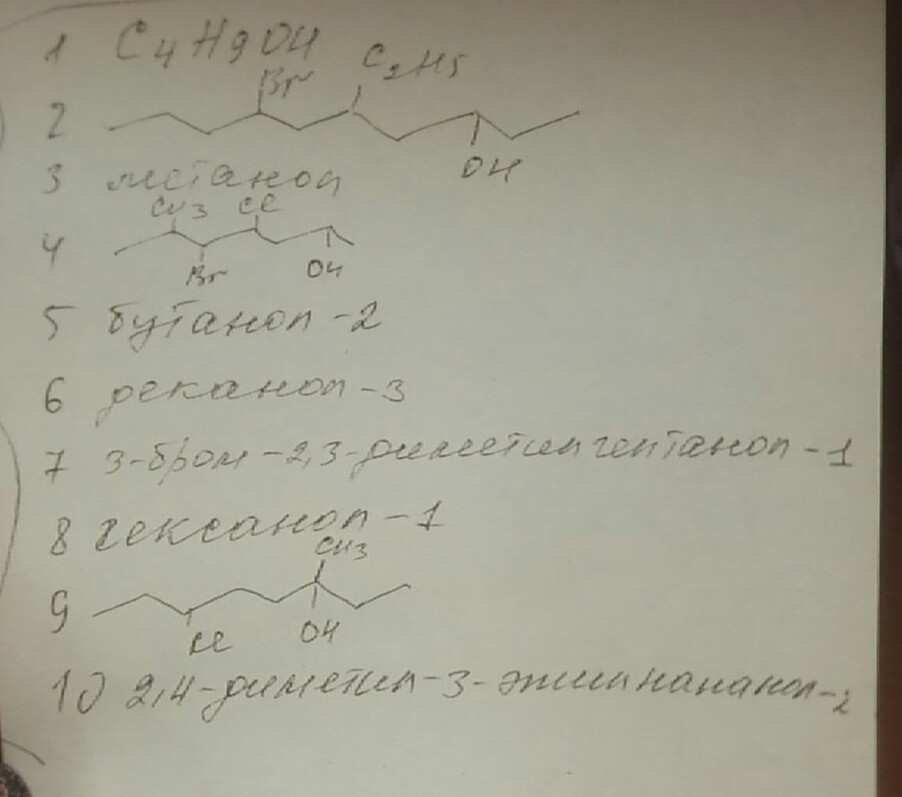 1 C4H9OH
C2H5
Br
2
OH
3 метанол
CH3 Cl
4
Br OH
5 бутанол-2
6 деканол-3
7 3-бром-2,3-диметилгептанол-1
8 гексанол-1
CH3
9
Cl OH
10 2,4-диметил-3-этилнананол-2